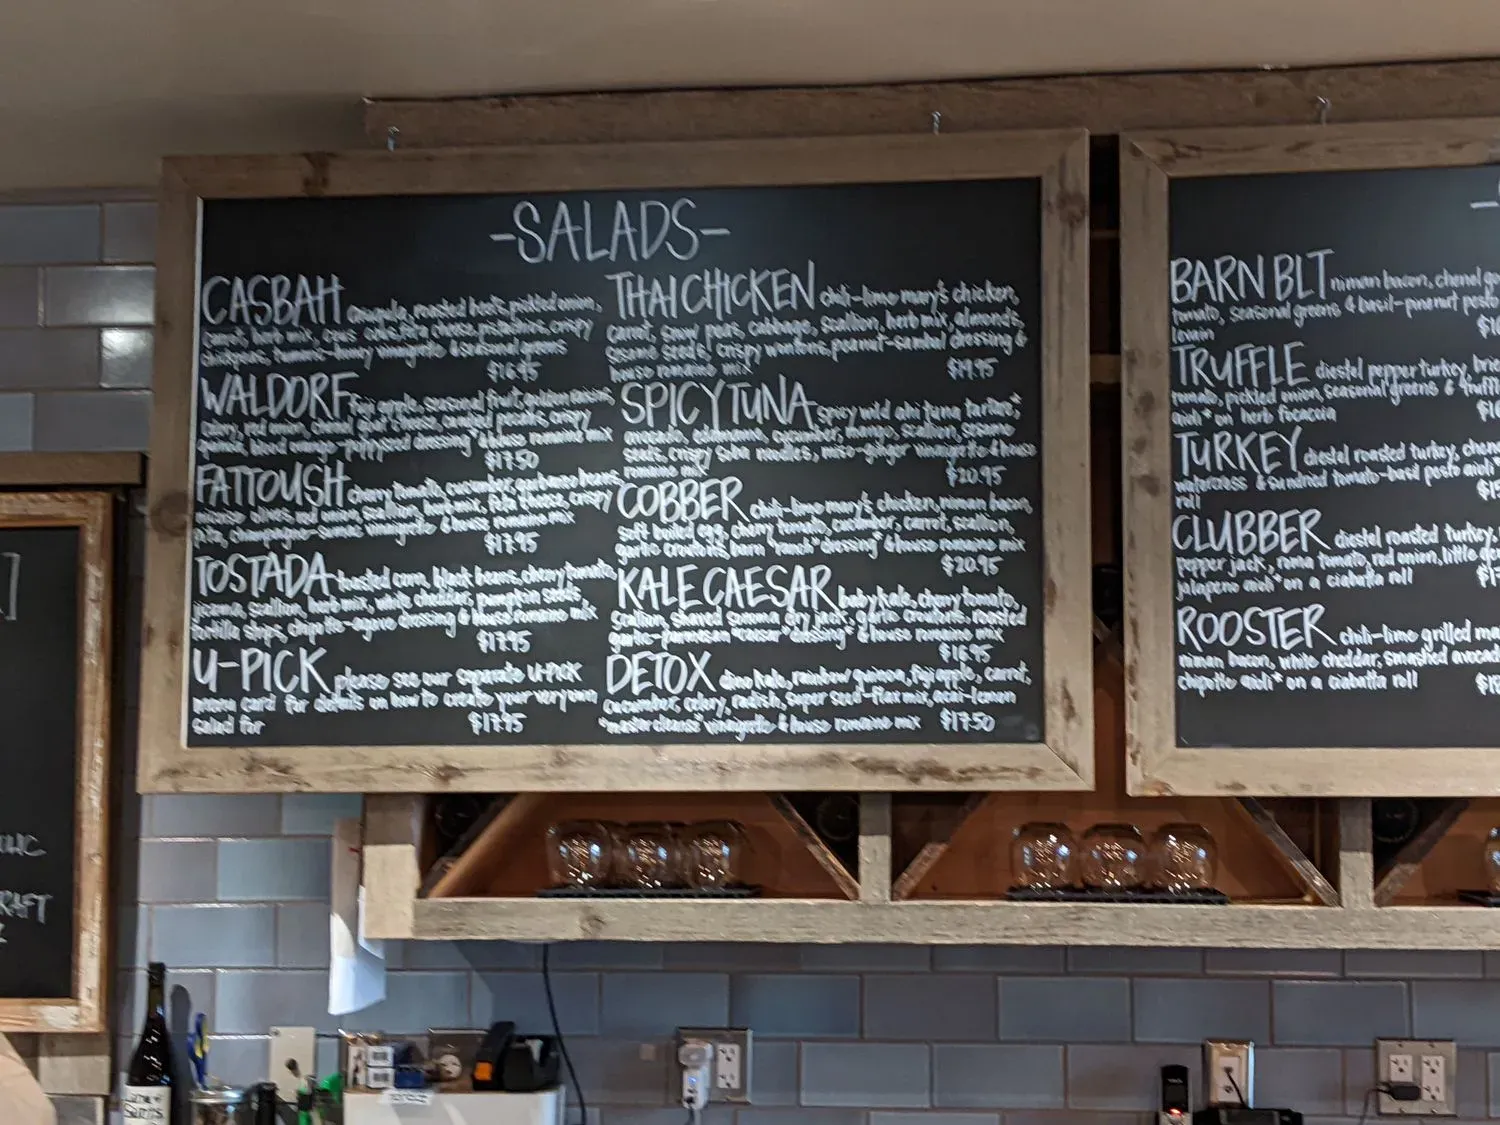 -SALADS-
CASBAH arugula, roasted beets, pickled onion,
carrot, herb mix, feta cheese, pistachios, crispy
chickpeas, hummus-honey vinaigrette & seasonal greens
$16.95
WALDORF fuji apple, seasonal fruit, golden raisins,
celery, red onion, goat cheese, candied pecans, crispy
quinoa, blood orange-poppyseed dressing & house romaine mix
$17.50
FATTOUSH cherry tomato, cucumber, garbanzo beans,
olives, red onion, scallion, herb mix, feta cheese, crispy
pita, champagne-sumac vinaigrette & house romaine mix
$17.95
TOSTADA toasted corn, black beans, cherry tomato,
jicama, scallion, herb mix, white cheddar, pumpkin seeds,
tortilla strips, chipotle-agave dressing & house romaine mix
$17.95
U-PICK please see our separate U-PICK
menu card for details on how to create your very own
salad for $17.95
THAI CHICKEN chili-lime mary's chicken,
carrot, snow peas, cabbage, scallion, herb mix, almonds,
sesame seeds, crispy wontons, peanut-sambal dressing &
house romaine mix $19.95
SPICY TUNA spicy wild ahi tuna tartare,*
avocado, edamame, cucumber, mango, scallion, sesame
seeds, crispy soba noodles, miso-ginger vinaigrette & house
romaine mix $20.95
COBBER chili-lime mary's chicken, niman bacon,
soft boiled egg, cherry tomato, cucumber, carrot, scallion,
garlic croutons, barn "ranch" dressing* & house romaine mix
$20.95
KALE CAESAR baby kale, cherry tomato,
scallion, shaved sonoma dry jack, garlic croutons, roasted
garlic-parmesan "caesar" dressing* & house romaine mix
$16.95
DETOX dino kale, rainbow quinoa, fuji apple, carrot,
cucumber, celery, radish, super seed-flax mix, acai-lemon
"master cleanse" vinaigrette & house romaine mix $17.50
BARN BLT niman bacon, chenel
tomato, seasonal greens & basil-peanut pesto
levain
TRUFFLE diestel pepper turkey, brie
tomato, pickled onion, seasonal greens & truffle
aioli* on herb focaccia
TURKEY diestel roasted turkey,
watercress & sundried tomato-basil pesto aioli*
roll
CLUBBER diestel roasted turkey,
pepper jack, roma tomato, red onion, little
jalapeno aioli* on a ciabatta roll
ROOSTER chili-lime grilled
niman bacon, white cheddar, smashed
chipotle aioli* on a ciabatta roll